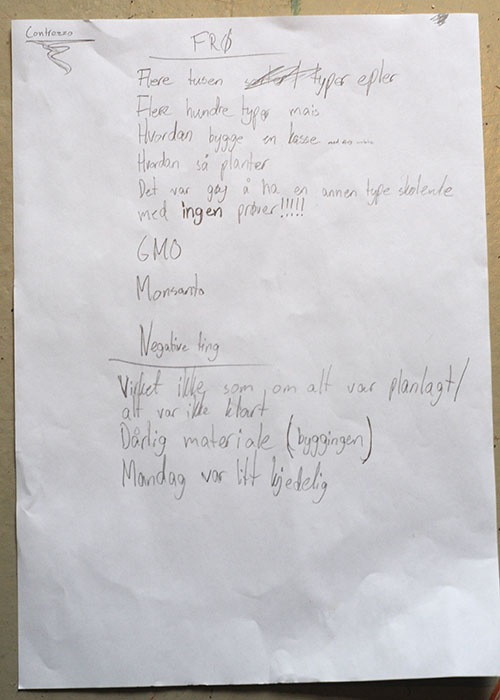 Contrazzo
FRØ
Flere tusen typer epler
Flere hundre typer mais
Hvordan bygge en kasse
Hvordan så planter
Det var gøy å ha en annen type skoleuke
med ingen prøver!!!!!
GMO
Monsanto
Negative ting
Virket ikke som om alt var planlagt/
alt var ikke klart
Dårlig materiale (byggingen)
Mandag var litt kjedelig